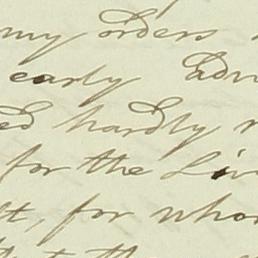 my orders
early adv
ed hardly
for the Liv
t, for whom